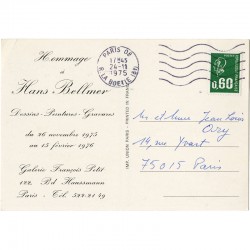 Hommage
à
Hans Bellmer
Dessins - Peintures - Gravures
du 26 novembre 1975
au 15 février 1976
Galerie François Petit
122, Bd Haussmann
Paris - Tél. 522-21-49
PARIS 08
17H45
24-11
1975
R. LA BOETIE (8E)
0,60
Mr et Mme Jean Louis
Ozry
14, rue Yvart
75015 Paris